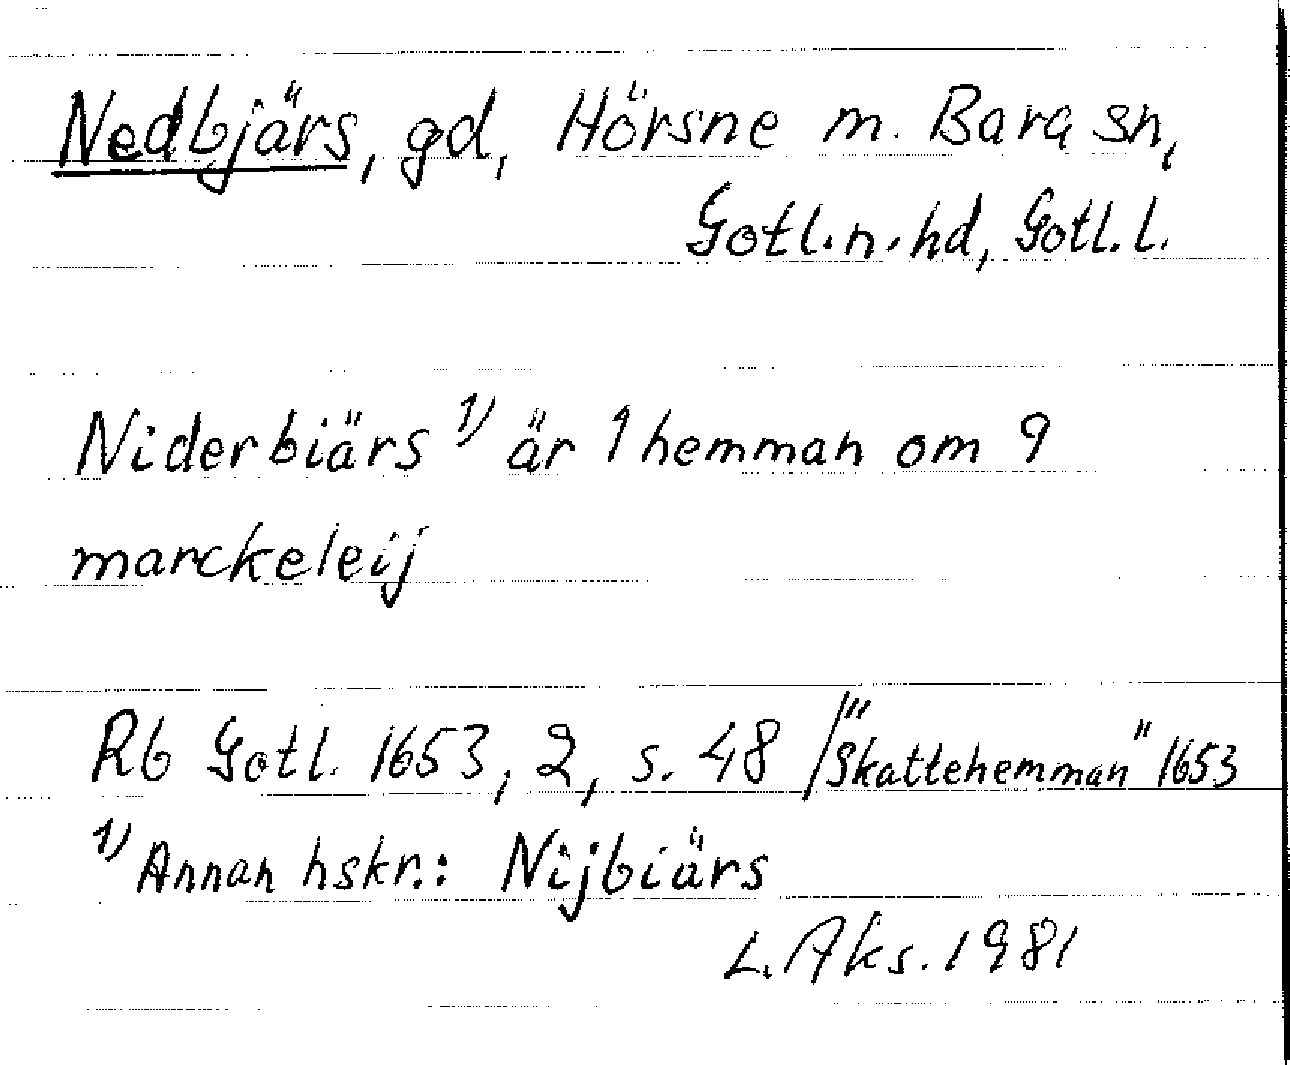 Nedbjärs, gd, Hörsne m. Bara sn,
Gotl.n.hd, Gotl.l.
Niderbiärs 1) är 1 hemman om 9
marckeleij
Rb Gotl. 1653, 2, s. 48 /"Skattehemman" 1653
1) Annan hskr.: Nijbiärs
L. Aks. 1981